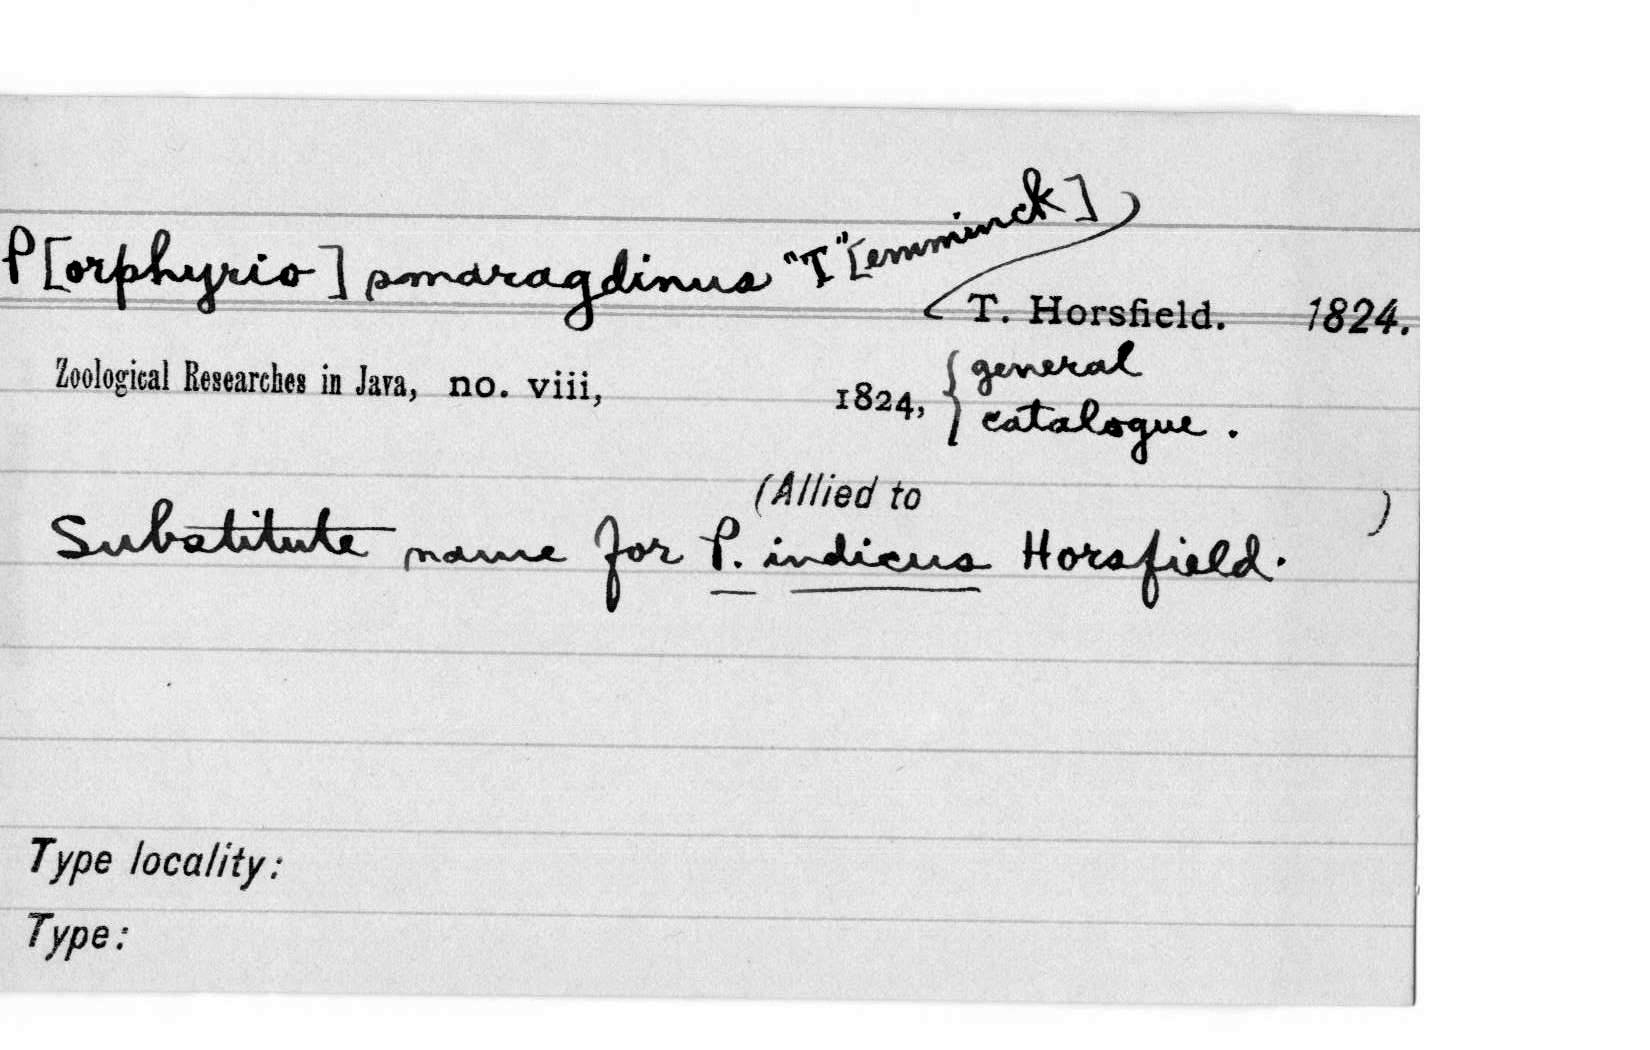 P[orphyrio] smaragdinus "T"[emminck]
T. Horsfield. 1824.
Zoological Researches in Java, no. viii, 1824, { general
catalogue.
(Allied to )
Substitute name for P. indicus Horsfield.
Type locality:
Type: